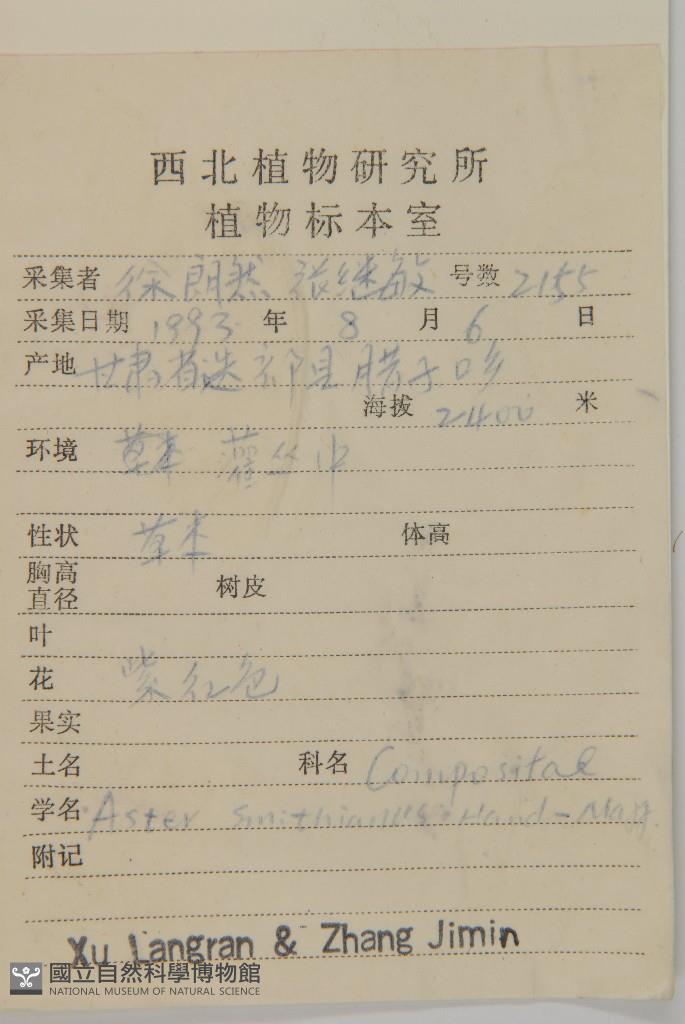 西北植物研究所
植物标本室
采集者 徐朗然 张继敏 号数 2155
采集日期 1993 年 8 月 6 日
产地 甘肃省迭部县腊子口乡
海拔 2400 米
环境 草本 灌丛中
性状 草本 体高
胸高直径 树皮
叶
花 紫红色
果实
土名 科名 Compositae
学名 Aster smithianus Hand-Mazz.
附记
Xu Langran & Zhang Jimin
國立自然科學博物館
NATIONAL MUSEUM OF NATURAL SCIENCE